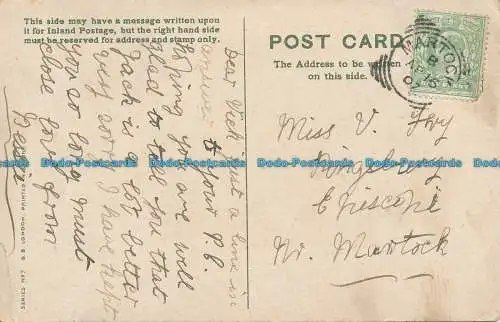 This side may have a message written upon
it for Inland Postage, but the right hand side
must be reserved for address and stamp only.
POST CARD
The Address to be written
on this side.
MARTOCK
B
Dear Vick just a line in
answer to your P.C.
hoping you are well
glad to tell you that
Jack is a lot better
very sorry I have kept
you so long must
close love from
Bessie
Miss V.
Kingsbury
Episcopi
Nr. Martock
SERIES Nº 7 G.D. LONDON. PRINTED
Dodo-Postcards Dodo-Postcards Dodo-Postcards Dodo-Postcards
Dodo-Postcards Dodo-Postcards Dodo-Postcards Dodo-Postcards